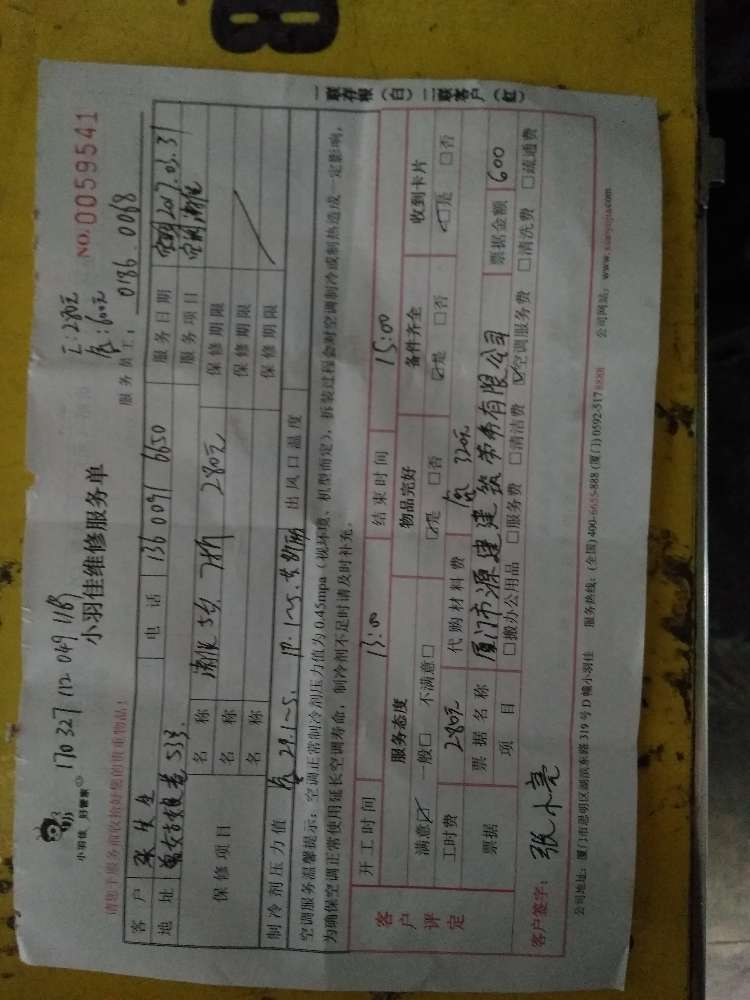 B
一联存根（白）二联客户（红）
小羽佳 好管家
170327 112 049 1185
工:280元
小羽佳维修服务单
NO.0059541
请您于服务前收拾好您的贵重物品!
服务员工: 0186.0068
客户 张先生 电话 136 0091 6650 服务日期 2017.03.31
地址 533 服务项目
保修项目 名称 280元 保修期限
名称 保修期限
名称 保修期限
制冷剂压力值 出风口温度
空调服务温馨提示：空调正常制冷剂压力值为0.45mpa（视环境、机型而定），拆装过程会对空调制冷或制热造成一定影响，
为确保空调正常使用延长空调寿命，制冷剂不足时请及时补充。
客户评定 开工时间 13:00 结束时间 15:00
服务态度 物品完好 备件齐全 收到卡片
满意☑ 一般□ 不满意□ ☑是 □否 ☑是 □否 ☑是 □否
工时费 280元 代购材料费 320元
票据 票据名称 厦门市源建建筑劳务有限公司 票据金额 600
项目 □搬办公用品 □服务费 □清洁费 ☑空调服务费 □清洗费 □疏通费
客户签字: 张小亮
公司地址：厦门市思明区湖滨东路319号D幢小羽佳 服务热线：(全国)400-6655-888 (厦门)0592-5178888 公司网站：www.xiaoyujia.com